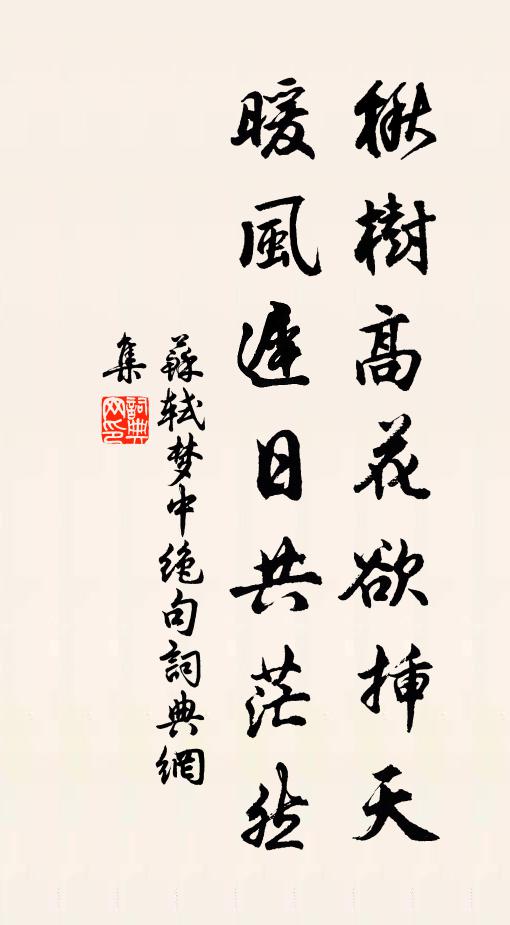 楸樹高花欲挿天
暖風遲日共茫然
蘇軾梦中绝句詞典網
集
詞典
网印